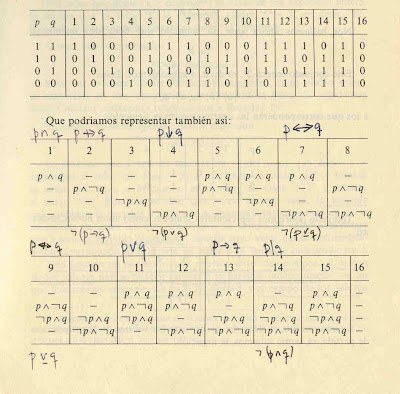 p q 1 2 3 4 5 6 7 8 9 10 11 12 13 14 15 16
1 1 1 0 0 0 1 1 1 0 0 0 1 1 1 0 1 0
1 0 0 1 0 0 1 0 0 1 1 0 1 1 0 1 1 0
0 1 0 0 1 0 0 1 0 0 1 1 1 0 1 1 1 0
0 0 0 0 0 1 0 0 1 1 0 1 0 1 1 1 1 0
Que podríamos representar también así:
p∧q p↛q p↓q p↔q
1 2 3 4 5 6 7 8
p ∧ q – – – p ∧ q p ∧ q p ∧ q –
– p ∧ ¬q – – p ∧ ¬q – – p ∧ ¬q
– – ¬p ∧ q – – ¬p ∧ q – –
– – – ¬p ∧ ¬q – – ¬p ∧ ¬q ¬p ∧ ¬q
¬(p→q) ¬(p∨q) ¬(p⊻q)
p↮q p∨q p→q p|q
9 10 11 12 13 14 15 16
– – p ∧ q p ∧ q p ∧ q – p ∧ q –
p ∧ ¬q – p ∧ ¬q p ∧ ¬q – p ∧ ¬q p ∧ ¬q –
¬p ∧ q ¬p ∧ q ¬p ∧ q – ¬p ∧ q ¬p ∧ q ¬p ∧ q –
– ¬p ∧ ¬q – ¬p ∧ ¬q ¬p ∧ ¬q ¬p ∧ ¬q ¬p ∧ ¬q –
p⊻q ¬(p∧q)